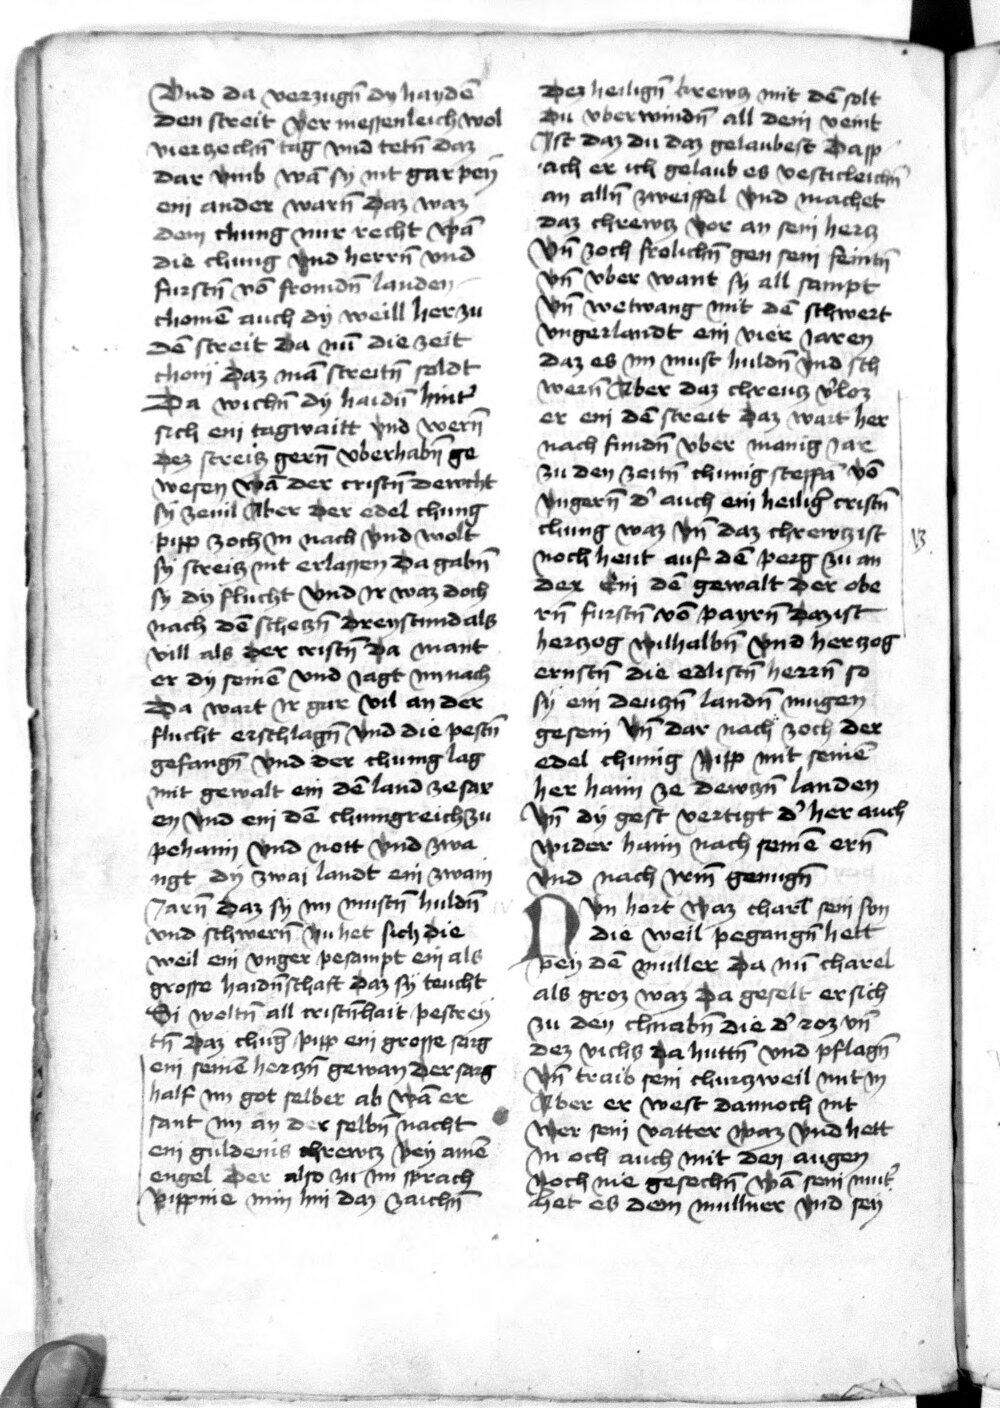 Vnd da verzugn̄ dy haydē
den streit vermessenleich wol
vierzechn̄ tag vnd tetn̄ daz
dar vmb wā sy nit gar pey
ein ander warn̄ Daz waz
dem chung nur recht wā
die chung vnd herrn̄ vnd
furstn̄ vō fromdn̄ landen
chomē auch dy weill her zu
dē streit Da nū die zeit
chom daz mā streitn̄ soldt
Da wichn̄ dy haidn̄ hint᾽
sich ein tagwaitt vnd wern̄
dez streitz gern̄ vberhabn̄ ge
wesen wā der cristn̄ dewcht
sy zeuil Aber der edel chung
pipp zoch in nach vnd wolt
sy streitz nit erlassen Da gabn̄
sy dy flucht vnd ir waz doch
nach dē schetzn̄ dreystund als
vill als der cristn̄ Da mant
er dy seinē vnd iagt in nach
Da wart ir gar vil an der
flucht erschlagn̄ vnd die pestn̄
gefangn̄ vnd der chung lag
mit gewalt ein dē land ze sax
en vnd ein dē chungreich zu
pehaim vnd nott vnd zwa
ngt dy zwai landt ein zwain
Jarn̄ daz sy im mustn̄ huldn̄
vnd schwern̄ Nu het sich die
weil ein vnger pesampt ein als
grosse haidn̄schaft daz sy teucht
Si woltn̄ all cristn̄hait pestrey
tn̄ Daz chuḡ pipp ein grosse sarg
ein seinē hertzn̄ gewan Der sarg
half im got selber ab wā er
sant im an der selbn̄ nacht
ein guldenis chrewtz pey ainē
engel Der also zu im sprach
Pippine nim hin daz zaichn̄
Dez heilign̄ krewtz mit dē solt
du vberwindn̄ all dein veint
Ist daz du daz gelaubest Da sp
ach er ich gelaub es vesticleichn̄
an alln̄ zweiffel vnd machet
daz chrewtz vor an sein hertz
vn̄ zoch frolichn̄ gen sein feintn̄
vn̄ vber want sy all sampt
vn̄ wetwang mit dē schwert
vngerlandt ein vier iaren
daz es im must huldn̄ vnd sch
wern̄ Aber daz chreutz v᾽loz
er ein dē streit daz wart her
nach fundn̄ vber manig iar
zu den zeitn̄ chunig steffā vō
vngern̄ d᾽ auch ein heilig᾽ cristn̄
chung waz vn̄ daz chrewtz ist
noch heut auf dē perg zu an
dex Ein dē gewalt der obe
rn̄ furstn̄ vō payrn̄ Daz ist
hertzog wilhalbn̄ vnd hertzog
ernstn̄ die edlistn̄ herrn̄ so
sy ein deutzn̄ landn̄ mugen
gesein vn̄ dar nach zoch der
edel chunig pipp mit seinē
her haim ze dewtzn̄ landen
vn̄ dy gest vertigt d᾽ her auch
wider haim nach seinē ern̄
vnd nach irm̄ genugn̄
Nvn hort waz charl sein sun
die weil pegangn̄ hett
pey dē muller Da nū charel
als groz waz Da geselt er sich
zu den chnabn̄ die d᾽ roz vn̄
dez vichs da huttn̄ vnd pflagn̄
vn̄ traib sein churtzweil mit in
Aber er west dannoch nit
wer sein vatter waz vnd hett
in och auch mit den augen
noch nie gesechn̄ wā sein mut᾽
het es dem mullner vnd sey